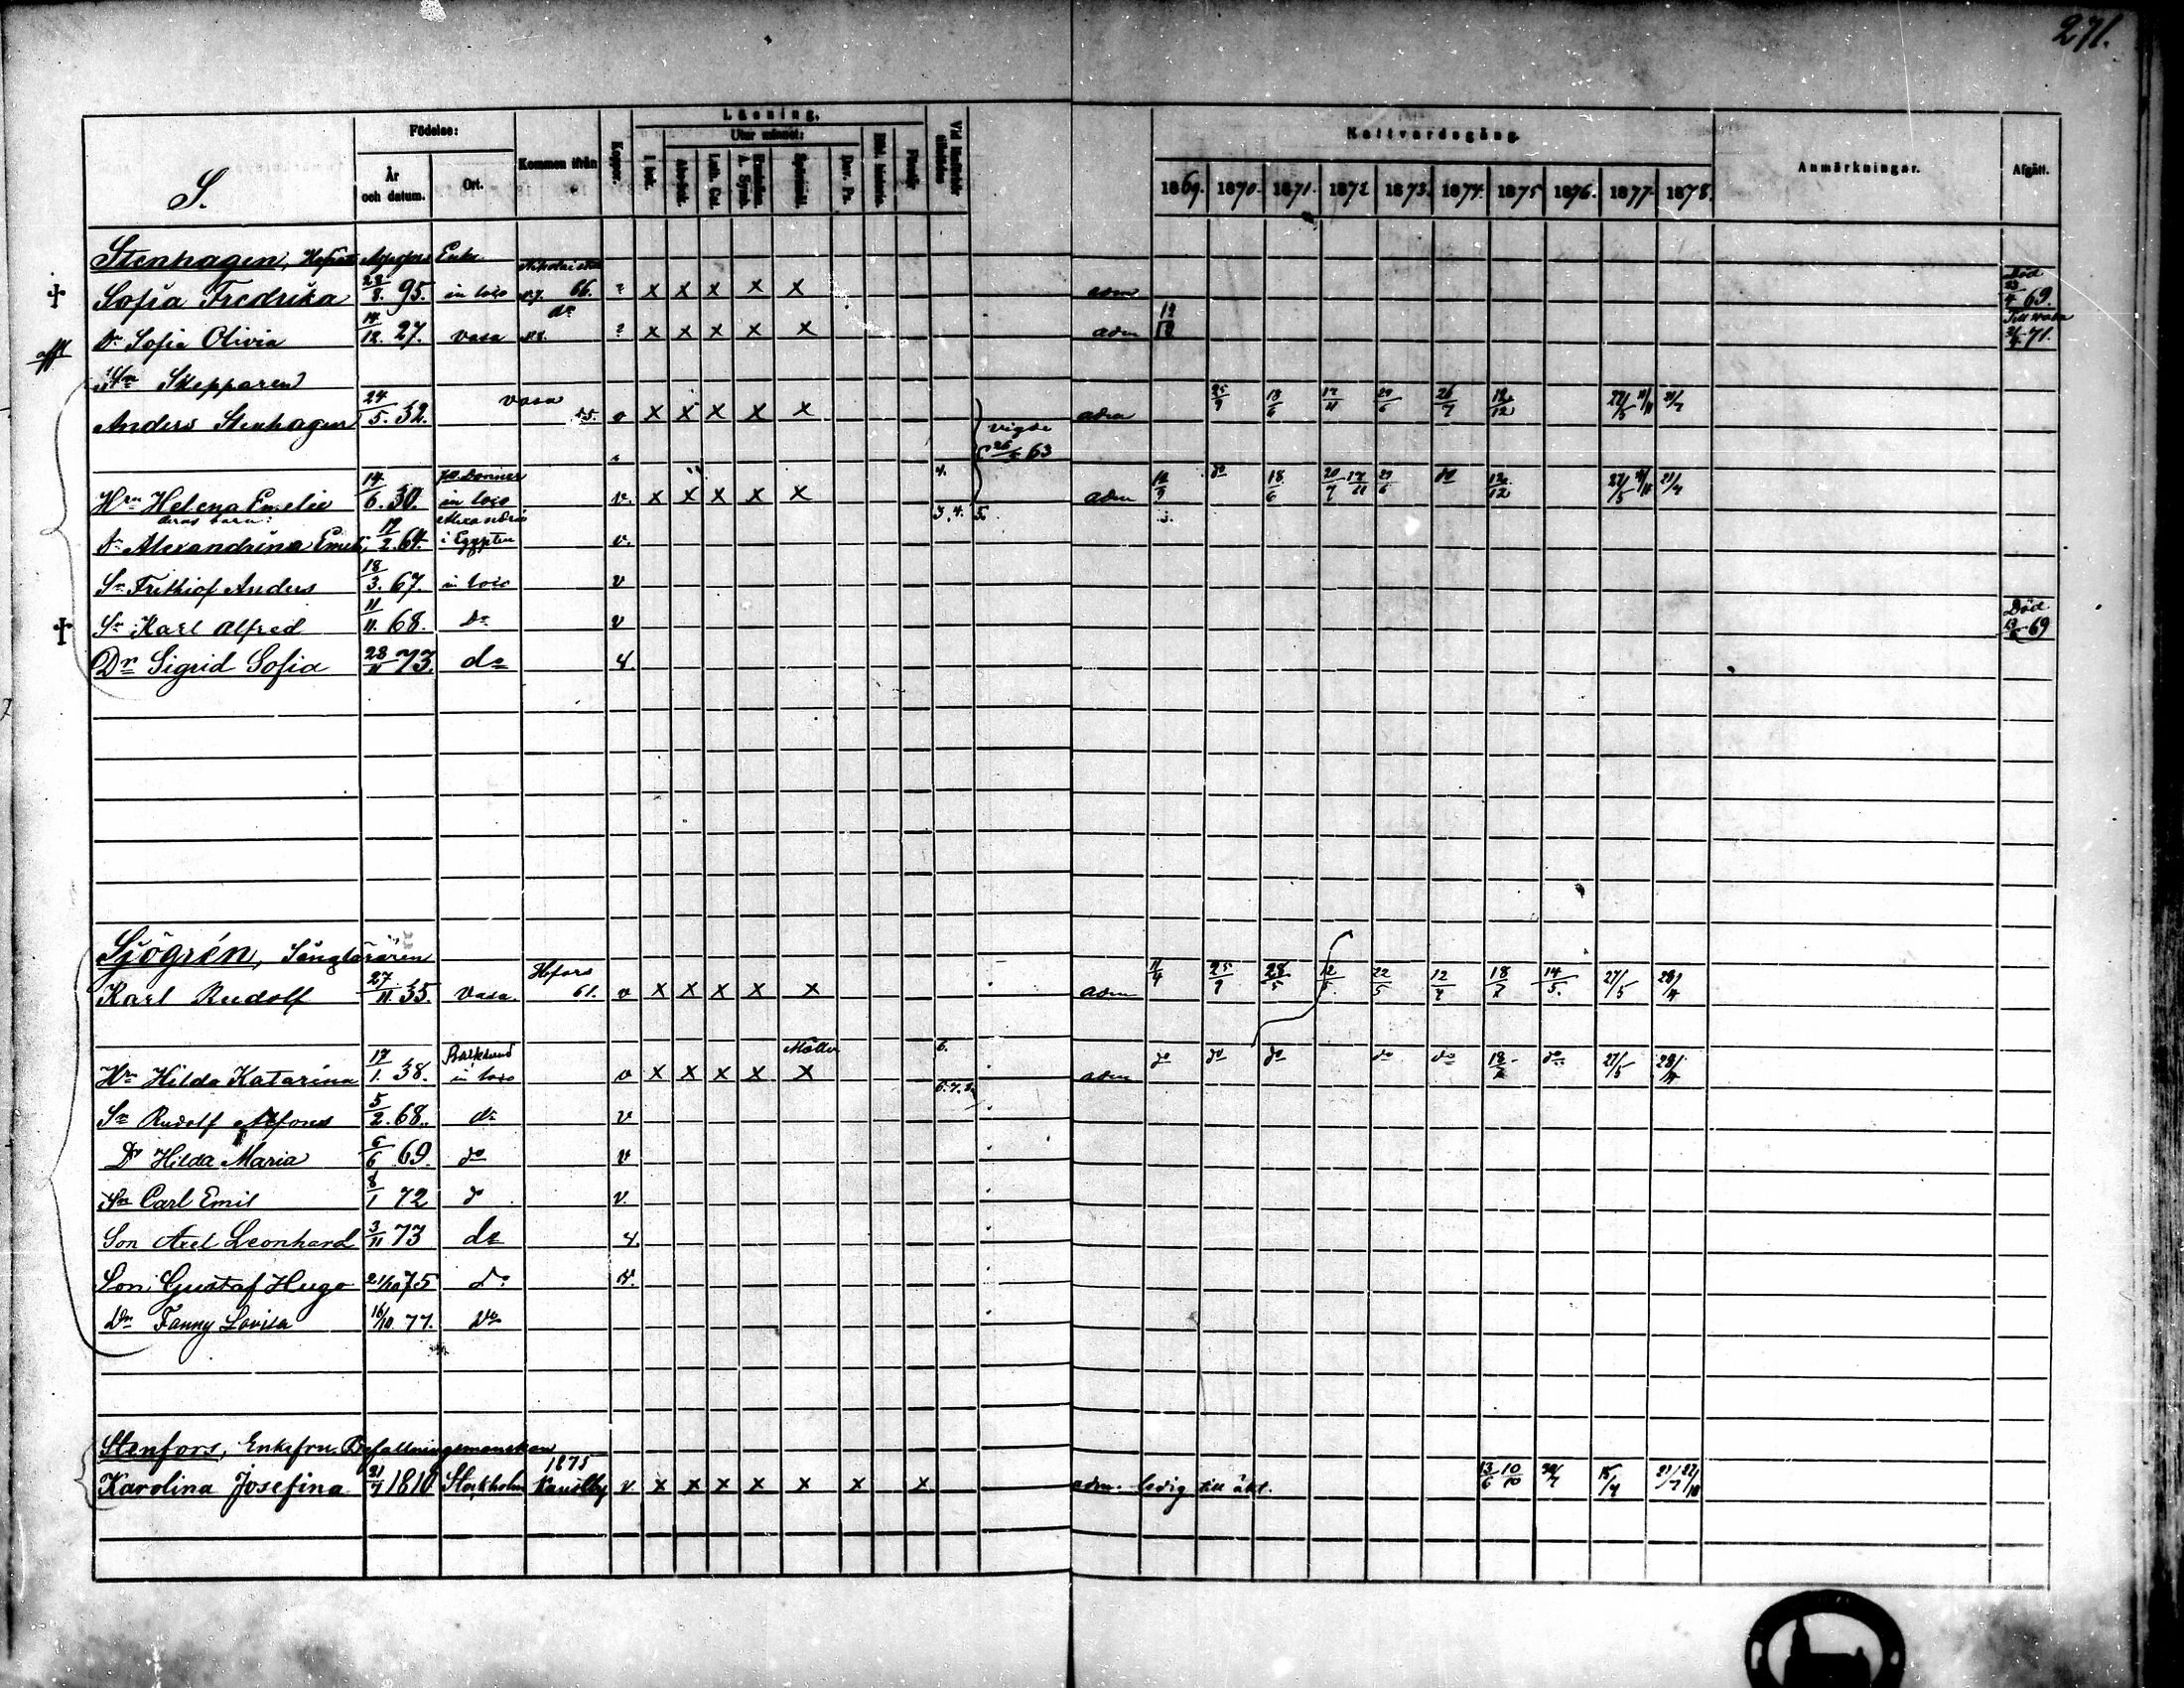 271.
S.
Födelse:
År och datum.
Ort.
Kommen ifrån
Koppor.
Läsning.
I bok.
Utur minnet:
Abc-bok.
Luth. Cat.
A. Symb.
Spörsmål.
Dav. Ps.
Bibl. historia.
Förstår
Nattvardsgång.
1869. 1870. 1871. 1872 1873. 1874. 1875 1876. 1877. 1878.
Anmärkningar.
Afgått.
Stenhagen, Enka.
Sofia Fredrika 28/8. 95. in loco 66. ? x x x x x adm Död 23/4 69.
Dr Sofia Olivia 14/12. 27. Vasa do ? x x x x x adm Till Vasa 71.
Sn Skepparen
Anders Stenhagen 24/5. 32. Vasa 55. v x x x x x vigde 63 adm 25/9 18/6 17/11 27/6 26/7 12/12 27/5
Hru Helena Emelie 14/6. 30. in loco v. x x x x x 4. adm do 18/6 27/6 do 12/12 27/5
deras barn: 3. 4. 5.
Dr Alexandrina 17/2. 64. Alexandria i Egypten v.
Sn Frithiof Anders 18/3. 67. in loco v
Sn Karl Alfred 11/11. 68. do v Död 69
Dr Sigrid Sofia 28/11 73. do v.
Sjögrén, Sångläraren
Karl Rudolf 27/11. 35. Vasa. Hfors 61. v x x x x x adm 11/4 25/9 28/5 12/5 22/5 12/4 18/7 14/5. 27/5 28/4
Hru Hilda Katarina 17/1. 38. in loco v x x x x x 6. adm do do do do do 18/7 do 27/5 28/4
Sn Rudolf Alfons 5/2. 68. do v
Dr Hilda Maria 6/6 69. do v
Sn Carl Emil 8/1 72 do v.
Son Axel Leonhard 3/11 73 do v.
Son Gustaf Hugo 21/10 75 Do v.
Dr Fanny Lovisa 16/10 77. Do
Stenfors, Enkefru Befallningsmanskan
Karolina Josefina 1810 Stockholm 1875 v x x x x x x x adm. ledig till äkt. 13/6 10/10 15/4